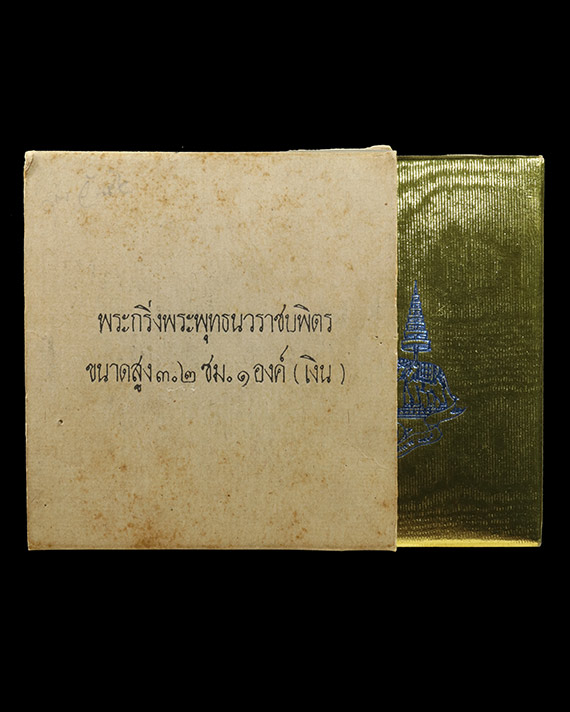 พระกริ่งพระพุทธนวราชบพิตร
ขนาดสูง ๓.๒ ซม. ๑ องค์ ( เงิน )